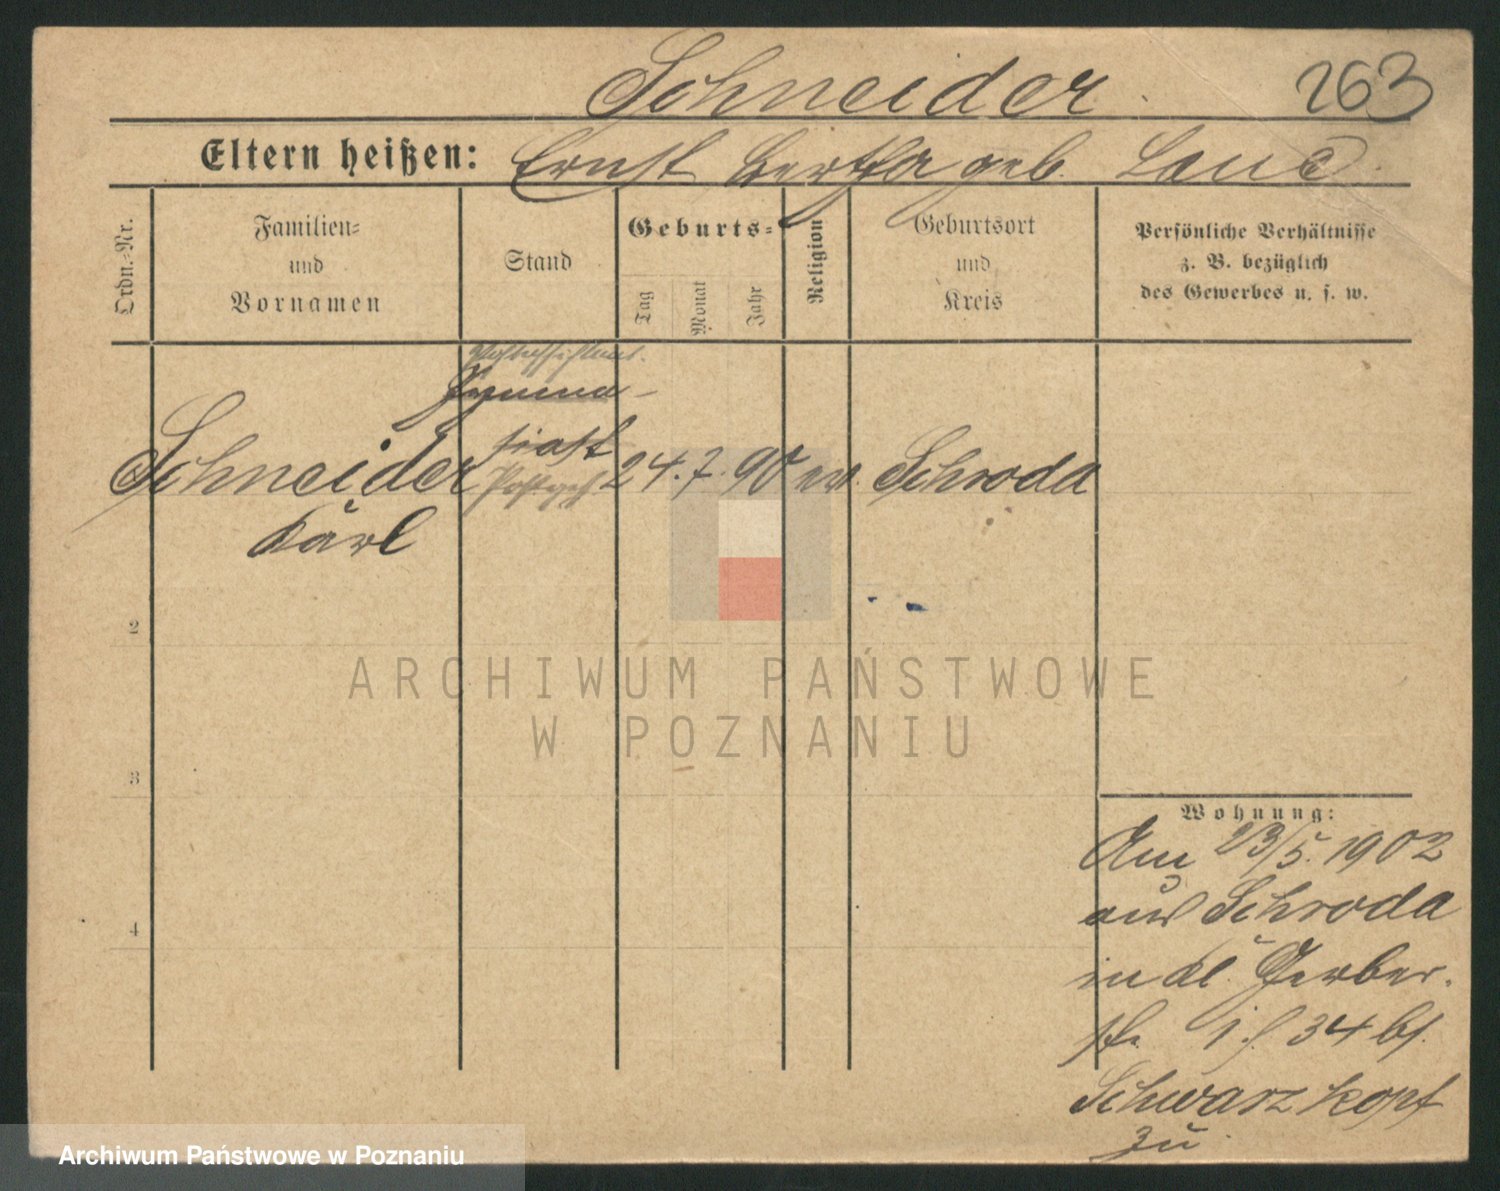 Schneider
263
Eltern heißen: Ernst Bertha geb.
Ordn.-Nr.
Familien-
und
Vornamen
Stand
Geburts-
Tag
Monat
Jahr
Religion
Geburtsort
und
Kreis
Persönliche Verhältnisse
z. B. bezüglich
des Gewerbes u. s. w.
Gymna-
siast
Schneider 24. 7. 90 ev. Schroda
Karl
2
3
4
Wohnung:
Am 23/5. 1902
aus Schroda
in kl. Gerber-
str. 34 bs.
Schwarzkopf
zu
ARCHIWUM PAŃSTWOWE
W POZNANIU
Archiwum Państwowe w Poznaniu